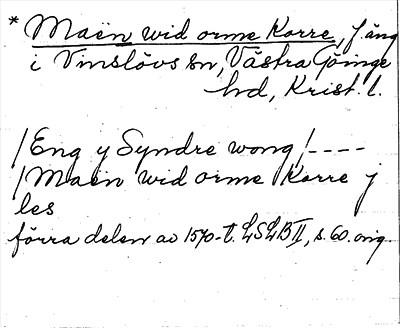 * Maën wid orme Korre, f. äng
i Vinslövs sn, Västra Göinge
hd, Krist. l.
/Eng y Syndre wong/----
/Maën wid orme Korre j
les
förra delen av 1570-t. LSLB II, s. 60. orig.